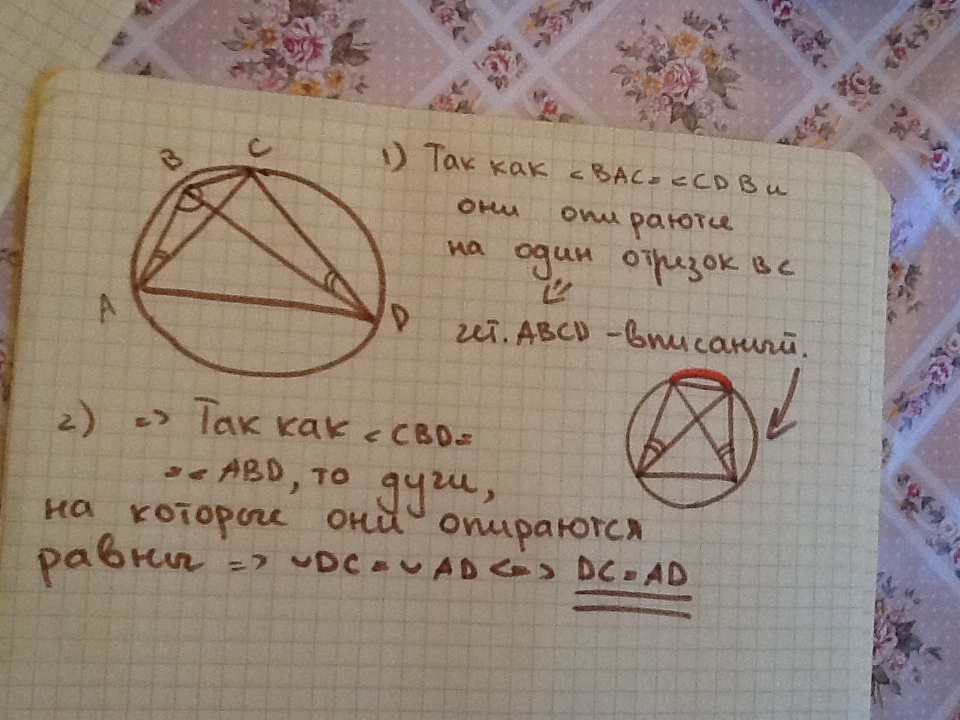 B
C
A
D
1) Так как <BAC=<CDB и
они опираются
на один отрезок BC
чет. ABCD - вписаный.
2) => Так как <CBD=
=<ABD, то дуги,
на которые они опираются
равны => ◡DC=◡AD <=> DC=AD